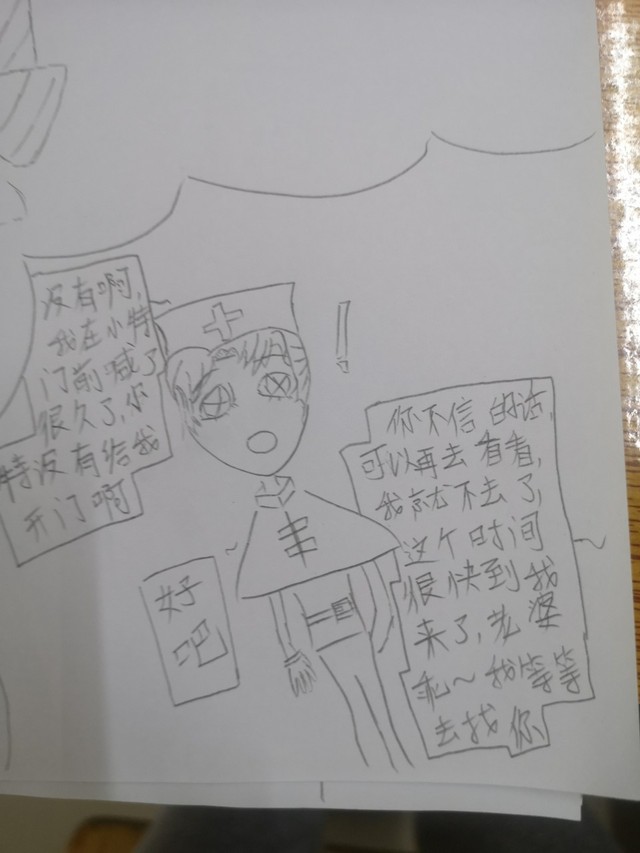 没有啊,
我在小特
门前喊了
很久了,小
特没有给我
开门啊
!
你不信的话,
可以再去看看,
我就不去了,
这个时间
很快到我
来了,老婆
乖~我等等
去找你
好
吧